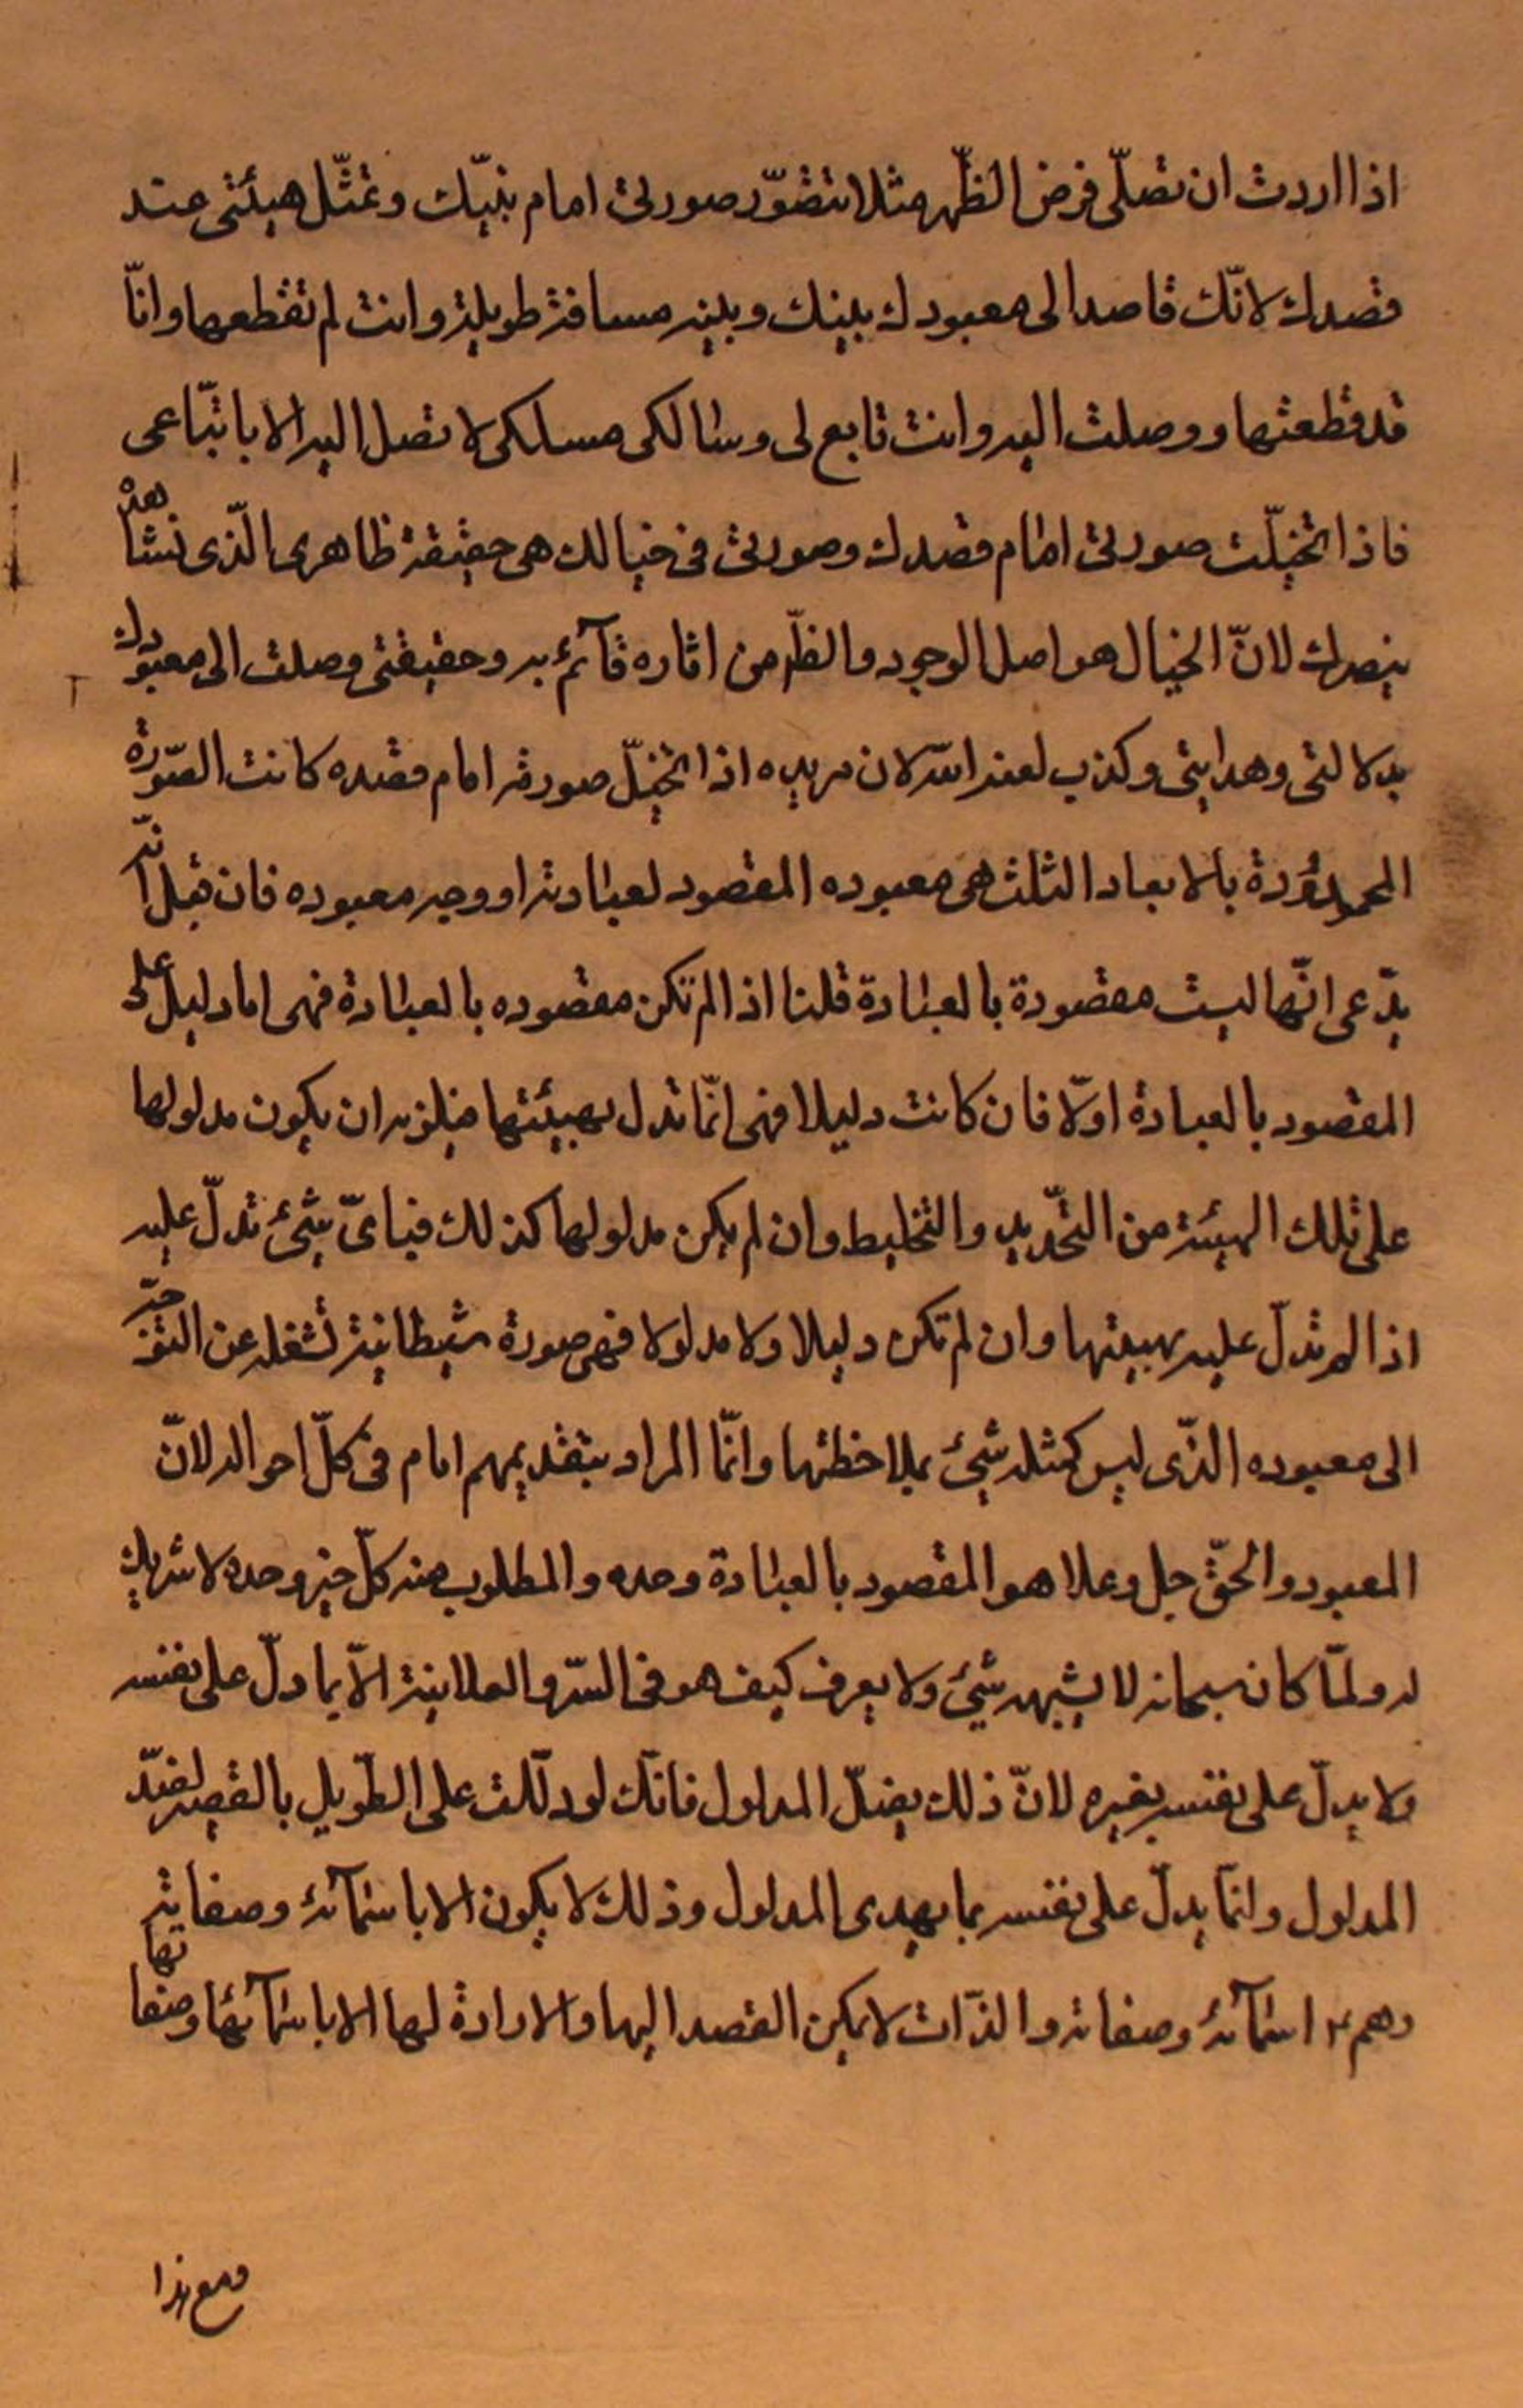 اذا اردت ان تصلّى فرض الظّهر مثلا تتصّور صورتى امام نيّتك وتمثّل هيئتى عند
قصدك لانّك قاصد الى معبودك بينك وبينه مسافة طويلة وانت لم تقطعها وانّا
قد قطعتها ووصلت اليه وانت تابع لى وسالك مسلكى لا تصل اليه الا باتّباعى
فاذا تخيّلت صورتى امام قصدك وصورتى فى خيالك هى حقيقة ظاهرى الّذى تشاهده
ببصرك لانّ الخيال هو اصل الوجود والظّهر من اثاره قآئم به وحقيقتى وصلت الى معبودك
بدلالتى وهدايتى وكذب لعنه الله لان مريده اذا تخيّل صورته امام قصده كانت الصّورة
المحدودة بالابعاد الثلث هى معبوده المقصود لعبادته او وجه معبوده فان قيل انّه
يدّعى انّها ليست مقصودة بالعبادة قلنا اذا لم تكن مقصوده بالعبادة فهى اما دليل على
المقصود بالعبادة اولّا فان كانت دليلا فهى انّما تدل بهيئتها فيلزمه ان يكون مدلولها
على تلك الهيئة من التحّديد والتخليط وان لم يكن مدلولها كذلك فباىّ شىء تدلّ عليه
اذا لم تدلّ عليه بهيئتها وان لم تكن دليلا ولا مدلولا فهى صورة شيطانية تشغله عن التوجّه
الى معبوده الذّى ليس كمثله شىء بملاحظتها وانّما المراد بتقديمهم امام فى كلّ احواله لانّ
المعبود والحّق جل وعلا هو المقصود بالعبادة وحده والمطلوب منه كلّ خير وحده لا شريك
له ولمّا كان سبحانه لا يشبهه شىء ولا يعرف كيف هو فى السّر والعلانية الّا بما دلّ على نفسه
ولا يدلّ على نفسه بغيره لانّ ذلك يضلّ المدلول فانّك لو دلّلت على الطّويل بالقصير لضّل
المدلول وانّما يدلّ على نفسه بما يهدى المدلول وذلك لا يكون الا باسمآئه وصفاته
وهم ع اسمآئه وصفاته والذّات لا يمكن القصد اليها والارادة لها الا باسمآئها وصفاتها
ومع هذا